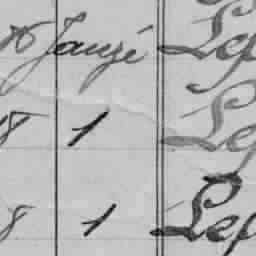 Janzé Lep
8 1 Lep
8 1 Lep